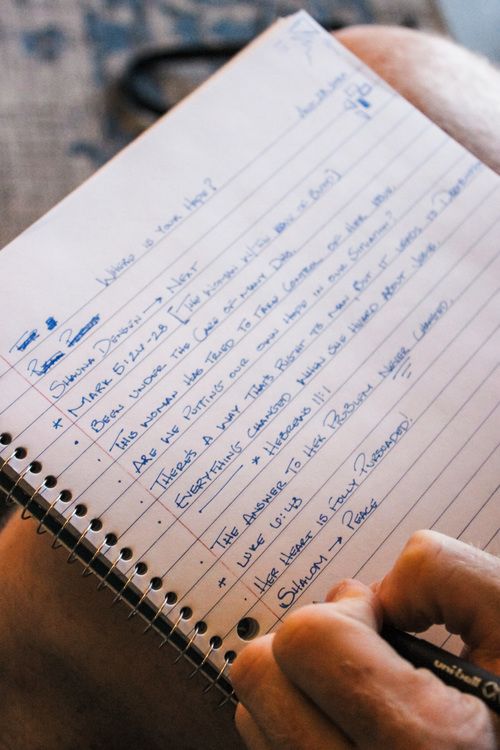 Where is Your Hope?
→ Next
* Mark 5:24-28 [The Woman w/ the Issue of Blood]
• Been under the Care of many Drs.
• This woman has tried to take control of her issue.
• Are we putting our own hope in our situation?
• There's a way that's right to man, but it leads to
• Everything changed when she heard about Jesus.
* Hebrews 11:1
• The answer to her problem never changed.
* Luke 6:45
Her heart is fully persuaded!
Shalom → Peace
uniball